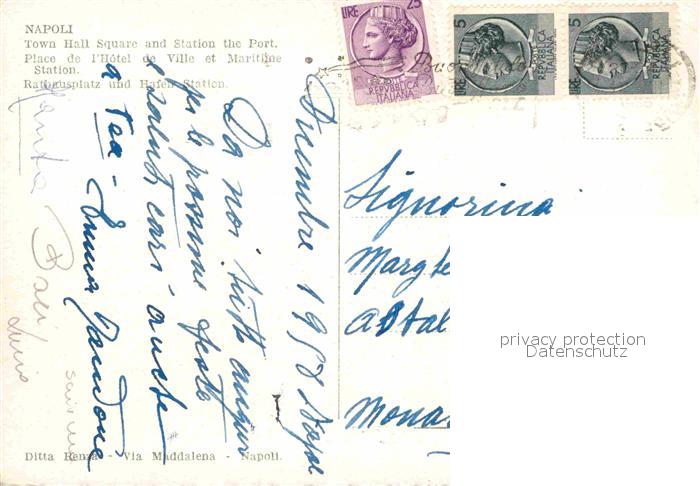 NAPOLI
Town Hall Square and Station the Port.
Place de l'Hôtel de Ville et Maritime
Station.
Rathausplatz und Hafen Station.
LIRE 25
REPVBBLICA
ITALIANA
LIRE 5
REPVBBLICA
ITALIANA
LIRE 5
REPVBBLICA
ITALIANA
Dicembre 1958 Napoli
Da noi tutti auguri
per le prossime feste
saluti cari anche
a Tea - Emma
Baci
Signorina
Marghe
Mona
privacy protection
Datenschutz
Ditta Renza - Via Maddalena - Napoli.